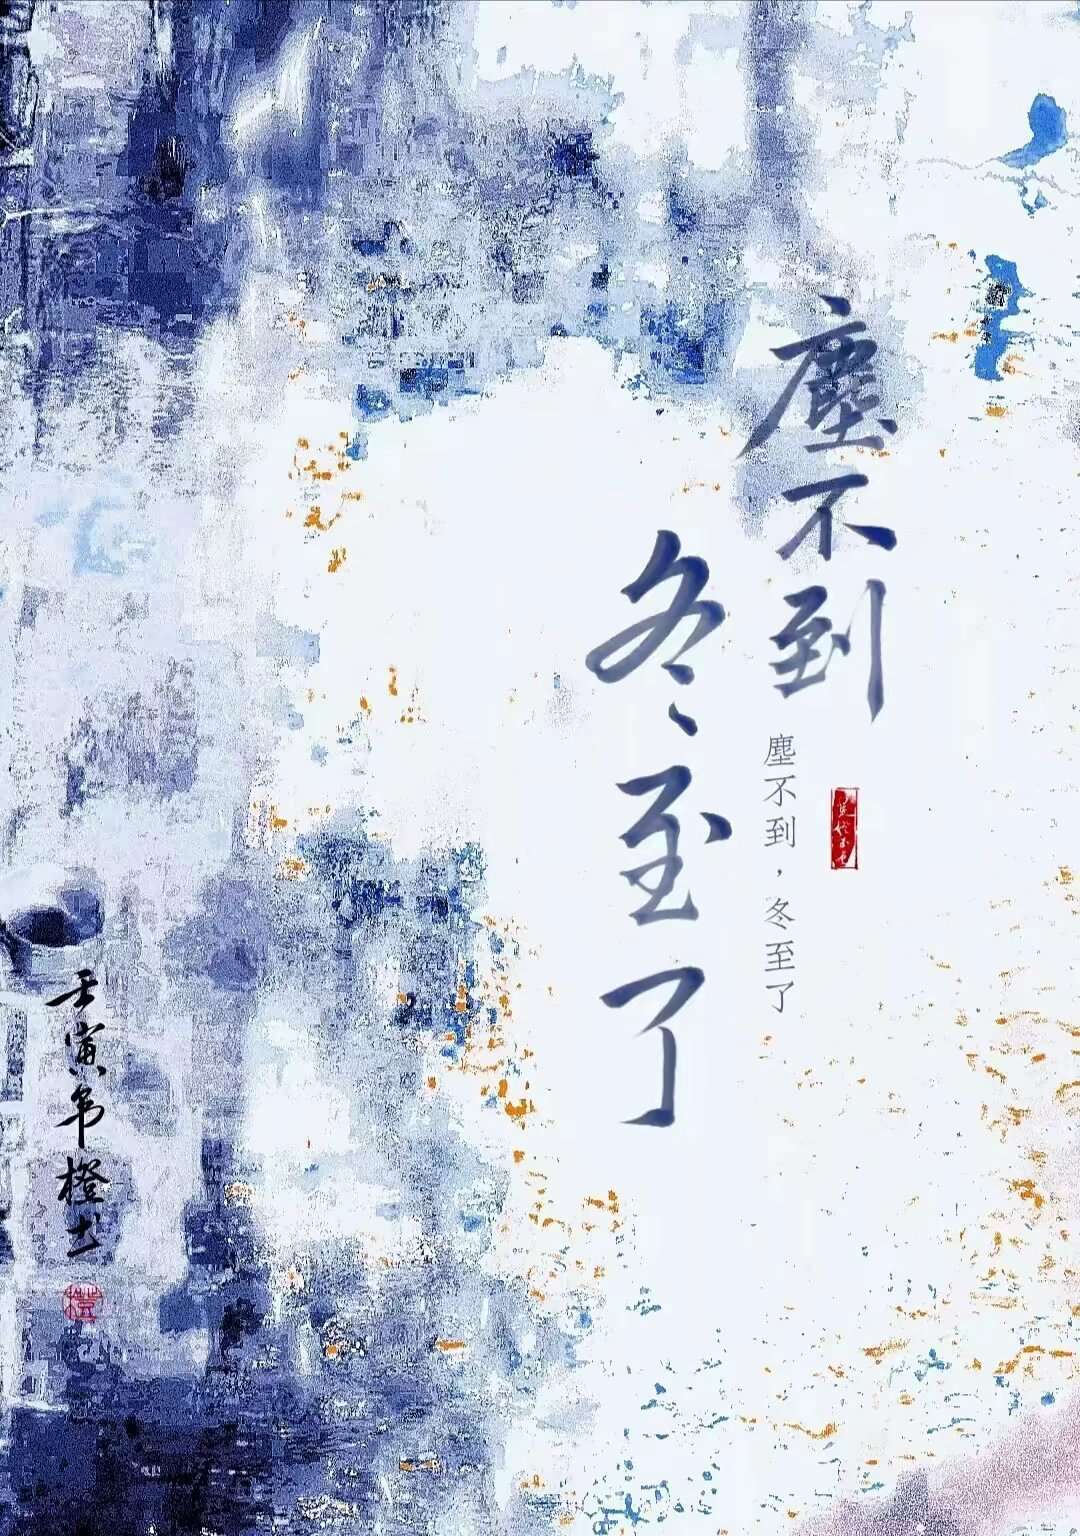 塵不到
冬至了
塵不到，冬至了
壬寅帛橙书